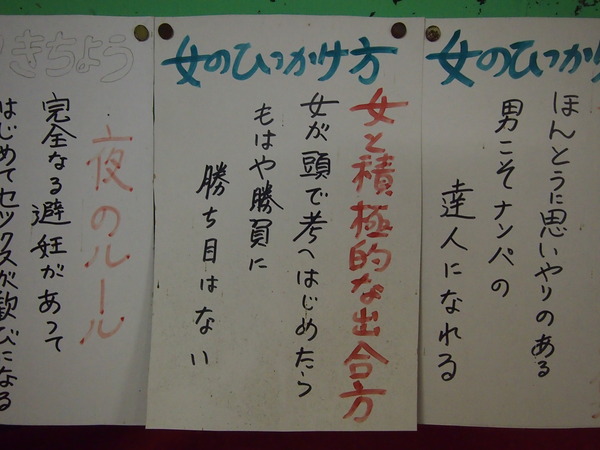 女のひっかけ
ほんとうに思いやりのある
男こそナンパの
達人になれる
女のひっかけ方
女と積極的な出合方
女が頭で考へはじめたら
もはや勝負に
勝ち目はない
きちょう
夜のルール
完全なる避妊があって
はじめてセックスが歓びになる